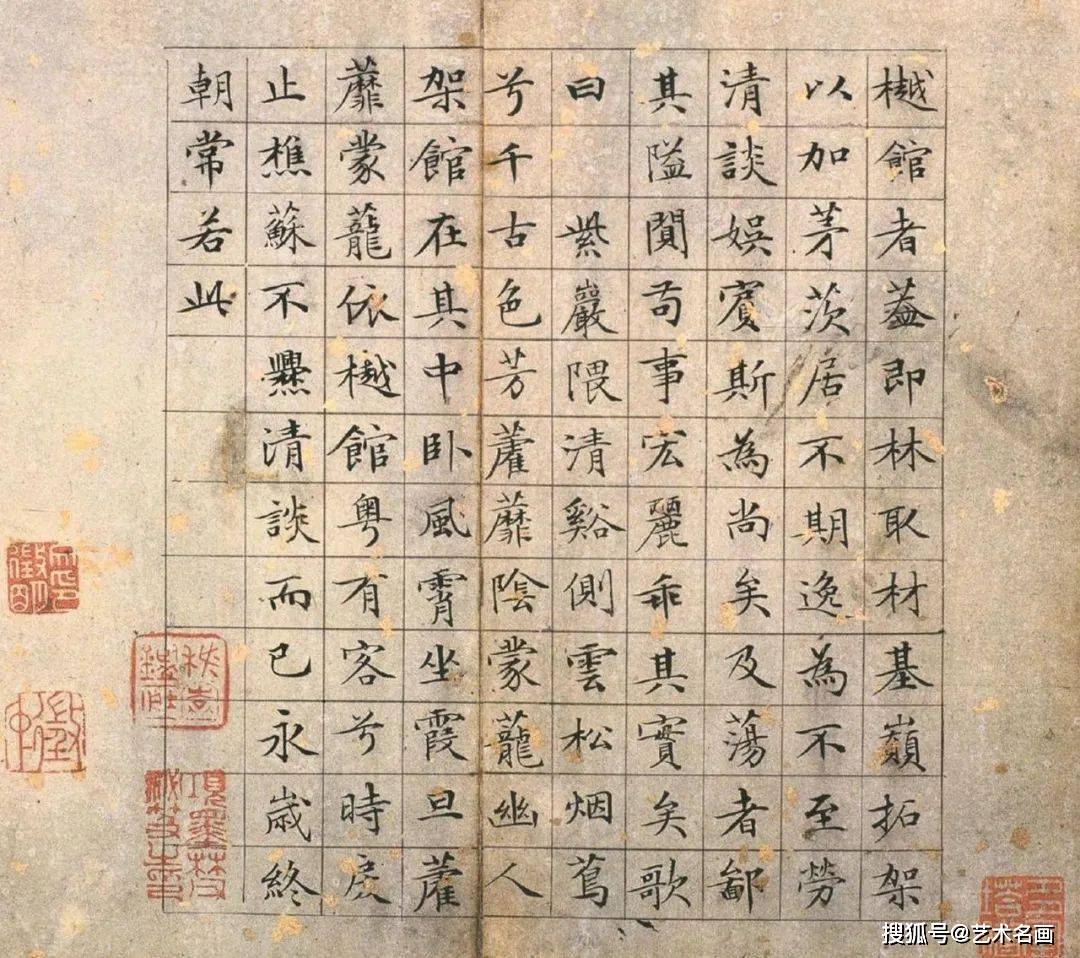 樾館者葢即林取材基巔拓架
以加茅茨居不期逸為不至勞
清談娛賓斯為尚矣及蕩者鄙
其隘闃苟事宏麗乖其實矣歌
曰 紫巖隈清谿側雲松烟蔦
兮千古色芳藿蘼陰蒙蘢幽人
架館在其中卧風霄坐霞旦藿
蘼蒙蘢依樾館粤有客兮時戾
止樵蘇不爨清談而已永歲終
朝常若此
項墨林父
搜狐号@艺术名画